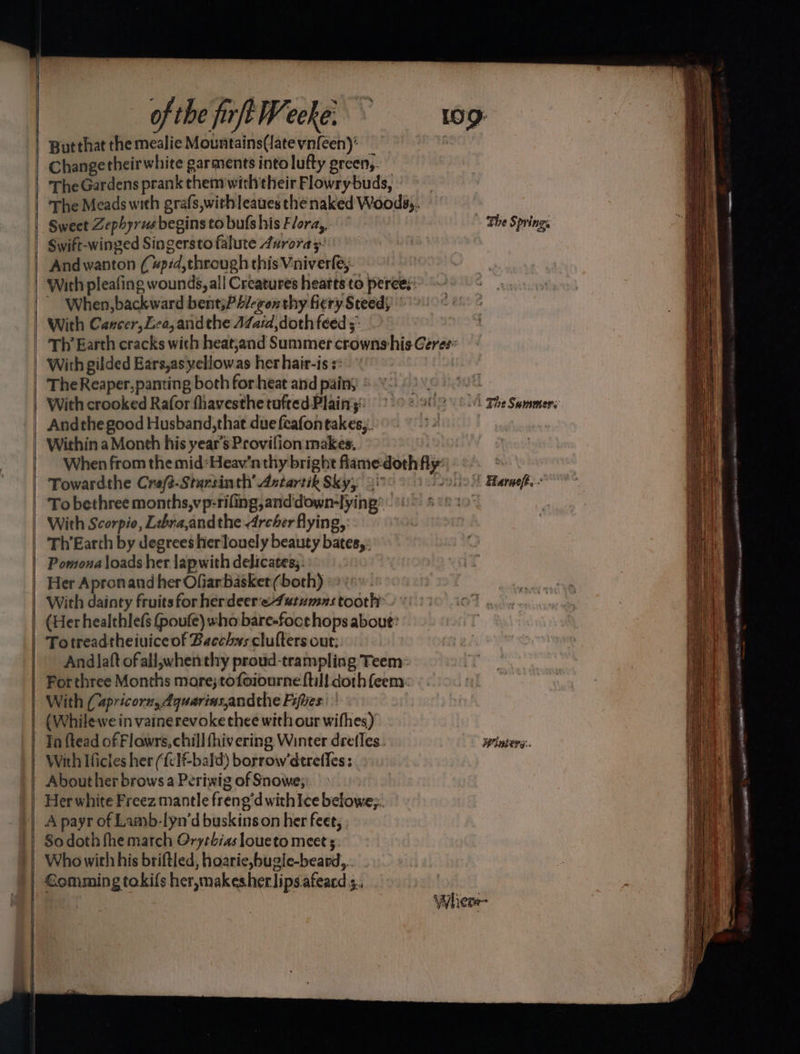 of the firſt Weeke. 109
But that the mealie Mountains (late vnſeen)
Change their white garments into luſty green,
The Gardens prank them with their Flowry buds,
The Meads with graſs, with leaues the naked Woods,
Sweet Zephyrus begins to buſs his Flora,
The Spring.
Swift-winged Singers to ſalute Aurora;
And wanton Cupid, through this Vniverſe,
With pleaſing wounds, all Creatures hearts to perce,
When, backward bent, Phlegon thy fiery Steed,
With Cancer, Leo, and the Maid, doth feed;
Th' Earth cracks with heat, and Summer crowns his Ceres
With gilded Ears, as yellow as her hair-is:
The Reaper, panting both for heat and pain,
With crooked Raſor ſhaves the tufted Plain;
The Summer.
And the good Husband, that due ſeaſon takes,
Within a Month his year's Proviſion makes.
When from the mid-Heav'n thy bright flame doth fly
Toward the Croſs-Stars in th' Antartik Sky,
Harueſt.
To be three months, vp-riſing, and down-lying
With Scorpio, Libra, and the Archer flying,
Th'Earth by degrees her louely beauty bates,
Pomona loads her lap with delicates,
Her Apron and her Oſiar basket (both)
With dainty fruits for her deer Autumns tooth
(Her healthleſs ſpouſe) who bare-foot hops about
To tread the iuice of Bacchus cluſters out.
And laſt of all, when thy proud-trampling Teem
For three Months more, to ſoiourne ſtill doth ſeem
With Capricorn, Aquarius, and the Fiſhes
(While we in vaine revoke thee with our wiſhes)
In ſtead of Flowrs, chill ſhivering Winter dreſſes
Winter.
With Iſicles her (ſelf-bald) borrow'd treſſes:
About her brows a Periwig of Snowe,
Her white Freez mantle freng'd with Ice belowe,
A payr of Lamb-lyn'd buskins on her feet,
So doth ſhe march Orythias loue to meet;
Who with his briſtled, hoarie, bugle-beard,
Comming to kiſs her, makes her lips afeard;
Where-